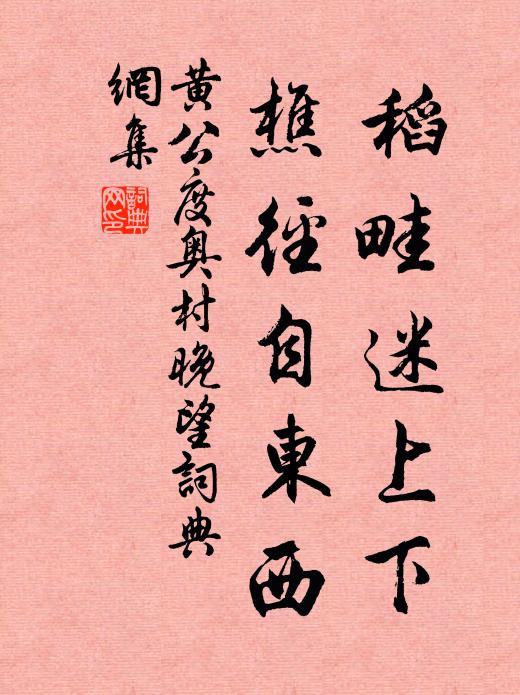 稻畦迷上下
樵徑自東西
黄公度奧村晚望詞典
網集
詞典
网印